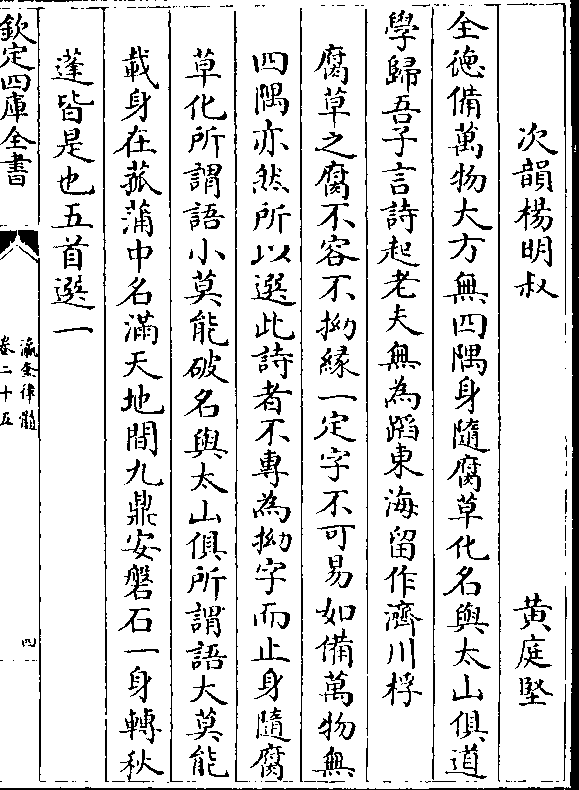 次韻楊明叔　黃庭堅
全徳備萬物大方無四隅身隨腐草化名與太山俱道
學歸吾子言詩起老夫無為蹈東海留作濟川桴
腐草之腐不容不拗縁一定字不可易如備萬物無
四隅亦然所以選此詩者不專為拗字而止身隨腐
草化所謂語小莫能破名與太山俱所謂語大莫能
載身在菰蒲中名滿天地間九鼎安磐石一身轉秋
蓬皆是也五首選一
欽定四庫全書
瀛奎律髓
卷二十五
四